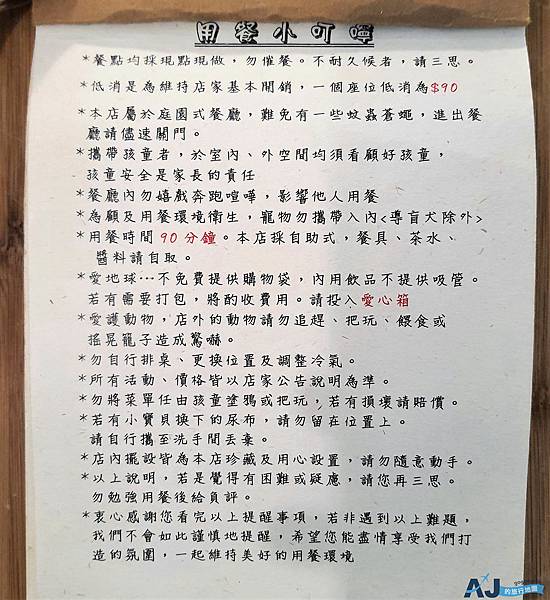 用餐小叮嚀
*餐點均採現點現做，勿催餐。不耐久候者，請三思。
*低消是為維持店家基本開銷，一個座位低消為$90
*本店屬於庭園式餐廳，難免有一些蚊蟲蒼蠅，進出餐
廳請儘速關門。
*攜帶孩童者，於室內、外空間均須看顧好孩童，
孩童安全是家長的責任
*餐廳內勿嬉戲奔跑喧嘩，影響他人用餐
*為顧及用餐環境衛生，寵物勿攜帶入內<導盲犬除外>
*用餐時間 90分鐘。本店採自助式，餐具、茶水、
醬料請自取。
*愛地球…不免費提供購物袋，內用飲品不提供吸管。
若有需要打包，將酌收費用。請投入愛心箱
*愛護動物，店外的動物請勿追趕、把玩、餵食或
搖晃籠子造成驚嚇。
*勿自行排桌、更換位置及調整冷氣。
*所有活動、價格皆以店家公告說明為準。
*勿將菜單任由孩童塗鴉或把玩，若有損壞請賠償。
*若有小寶貝換下的尿布，請勿留在位置上。
請自行攜至洗手間丟棄。
*店內擺設皆為本店珍藏及用心設置，請勿隨意動手。
*以上說明，若是覺得有困難或疑慮，請您再三思。
勿勉強用餐後給負評。
*衷心感謝您看完以上提醒事項，若非遇到以上難題，
我們不會如此謹慎地提醒，希望您能盡情享受我們打
造的氛圍，一起維持美好的用餐環境
AJ
的旅行地圖